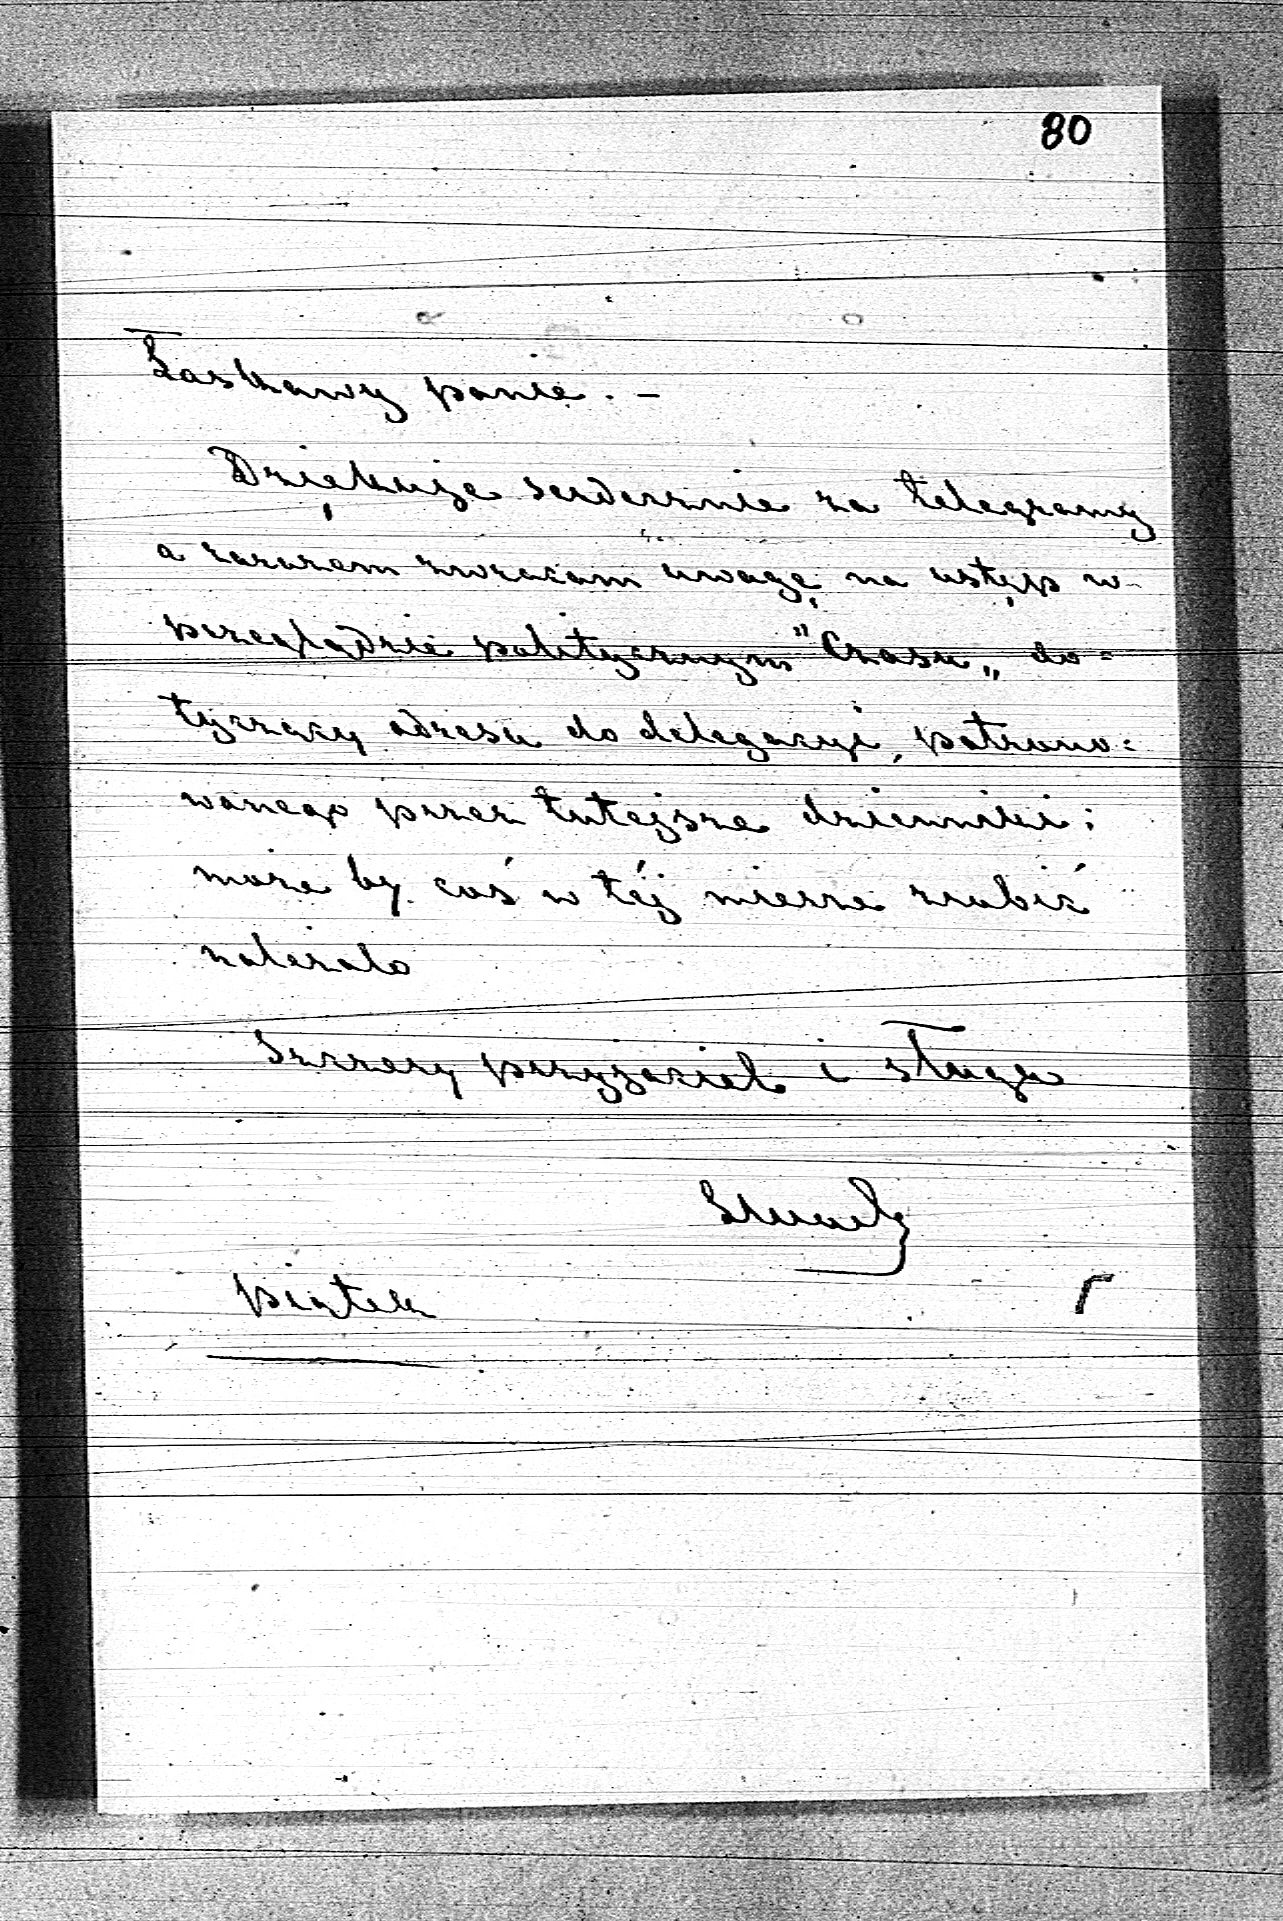 80
Łaskawy panie. -
Dziękuję serdecznie za telegramy
a zarazem zwracam uwagę na ustęp w
przeglądzie politycznym "Czasu„ do=
tyczący adresu do delegacyi, patrono=
wanego przez tutejsze dzienniki;
może by coś w téj mierze zrobić
należało
Szczery przyjaciel i sługa
piątek